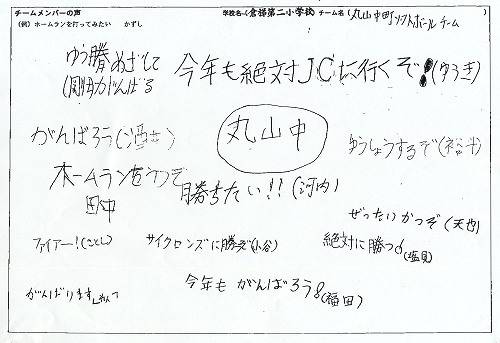 チームメンバーの声 学校名(倉梯第二小学校) チーム名(丸山中町ソフトボールチーム)
(例) ホームランを打ってみたい かずし
ゆう勝めざして
がんばる
今年も絶対JCに行くぞ!(ゆうき)
がんばろう(酒井)
丸山中
ゆうしょうするぞ(裕斗)
ホームランをうつぞ
田中
勝ちたい!!(河内)
ぜったいかつぞ(天也)
ファイアー!(さとし)
サイクロンズに勝つぞ(小谷)
絶対に勝つ(塩見)
がんばります
今年もがんばろう(福田)